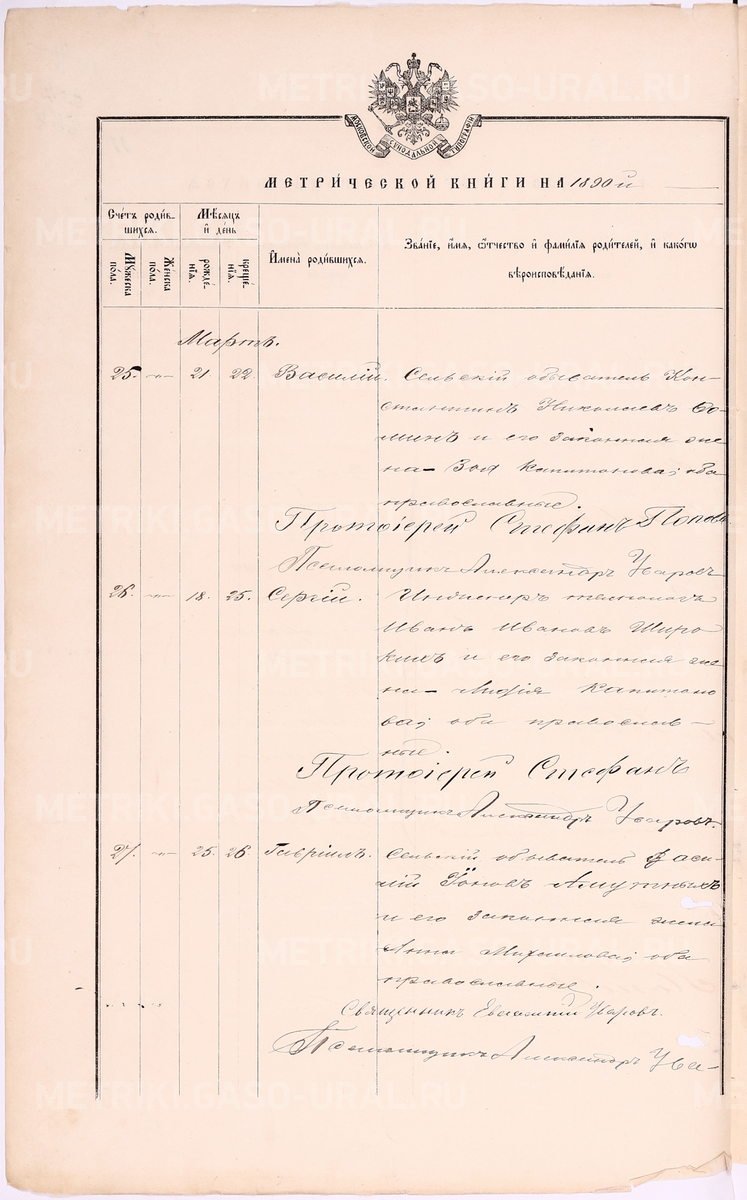 METRIKI.GASO-URAL.RU
МОСКОВСКОЙ СѴНОДАЛЬНОЙ ТИПОГРАФІИ
МЕТРИ́ЧЕСКОЙ КНИ́ГИ НА 1890 й
Сче́тъ роди́вшихся.
Му́жеска по́ла.
Же́нска по́ла.
Мѣ́сяцъ и́ де́нь
рожде́нїя.
креще́нїя.
И҆мена̀ роди́вшихся.
Зва́нїе, и҆́мя, ѻ҆́тчество и҆ фами́лїя роди́телей, и҆ како́гѡ
вѣроисповѣ́данїя.
Мартъ.
25. -"- 21 22 Василій. Сельскій обыватель Кон-
стантинъ Николаевъ Ѳо-
минъ и его законная же
на – Зоя Капитонова; оба
православные.
Протоіерей Стефанъ Поповъ
Псаломщикъ Александръ Уваровъ
26. -"- 18. 25. Сергій. технологъ
Иванъ Ивановъ Широ
кихъ и его законная же
на – Лидія Капитоно
ва; оба православ–
ные.
Протоіерей Стефанъ
Псаломщикъ Александръ Уваровъ.
27. -"- 25. 26 Гавріилъ. Сельскій обыватель Васи-
лій Іоновъ
и его законная жена
Анна Михаилова; оба
православные.
Священникъ Евгеній Уваровъ.
Псаломщикъ Александръ Ува-